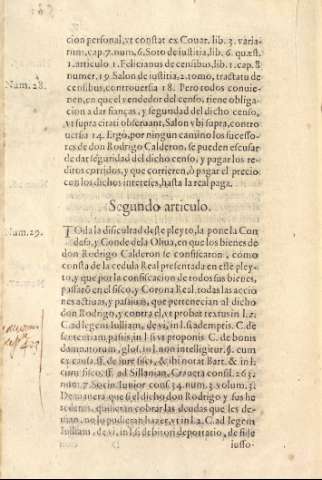 cion personal, vt constat ex Couar. lib. 3. variarum,
cap. 7. num. 6. Soto de iustitia, lib. 6. quæst.
1. articulo 1. Felicianus de censibus, lib. 1. cap. 8
numer. 19. Salon de iustitia, 2. tomo, tractatu de
Num. 28.
censibus, controuersia 18. Pero todos conuienen,
en que el vendedor del censo, tiene obligacion
a dar fianças, y seguridad del dicho censo,
vt supra citati obseruant, Salon vbi supra, controuersia
14. Ergo, por ningun camino los sucessores
de don Rodrigo Calderon, se pueden escusar
de dar seguridad del dicho censo, y pagar los reditos
corridos, y que corrieren, ò pagar el precio
con los dichos intereses, hasta la real paga.
Segundo articulo.
Num. 29.
TOda la dificultad deste pleyto, la pone la Condesa,
y Conde de la Oliua, en que los bienes de
don Rodrigo Calderon se confiscaron, como
consta de la cedula Real presentada en este pleyto,
y que por la confiscacion de todos sus bienes,
passarõ en el fisco, y Corona Real, todas las acciones
actiuas, y passiuas, que pertenecian al dicho
don Rodrigo, y contra el, vt probat textus in l. 2.
C. ad legem Iulliam, de vi, in l. si ademptis. C. de
sententiam passis, in l. si vt proponis. C. de bonis
damnatorum, glos. in l. non intelligitur, §. cum
ex causa, ff. de iure fisci, & ibi notat Bart. & in l.
cum fisco, ff. ad Sillanian. Craueta consil. 263.
num. 7. Socin. Iunior cons. 34. num. 3. volum. 3.
De manera, que si el dicho don Rodrigo y sus
acreedores, quisieran cobrar las deudas que les deuian,
no lo pudieran hazer, vt in l. 2. C. ad legem
Iulliam, de vi, in l. si debitor deportatio, de fide
iusso-